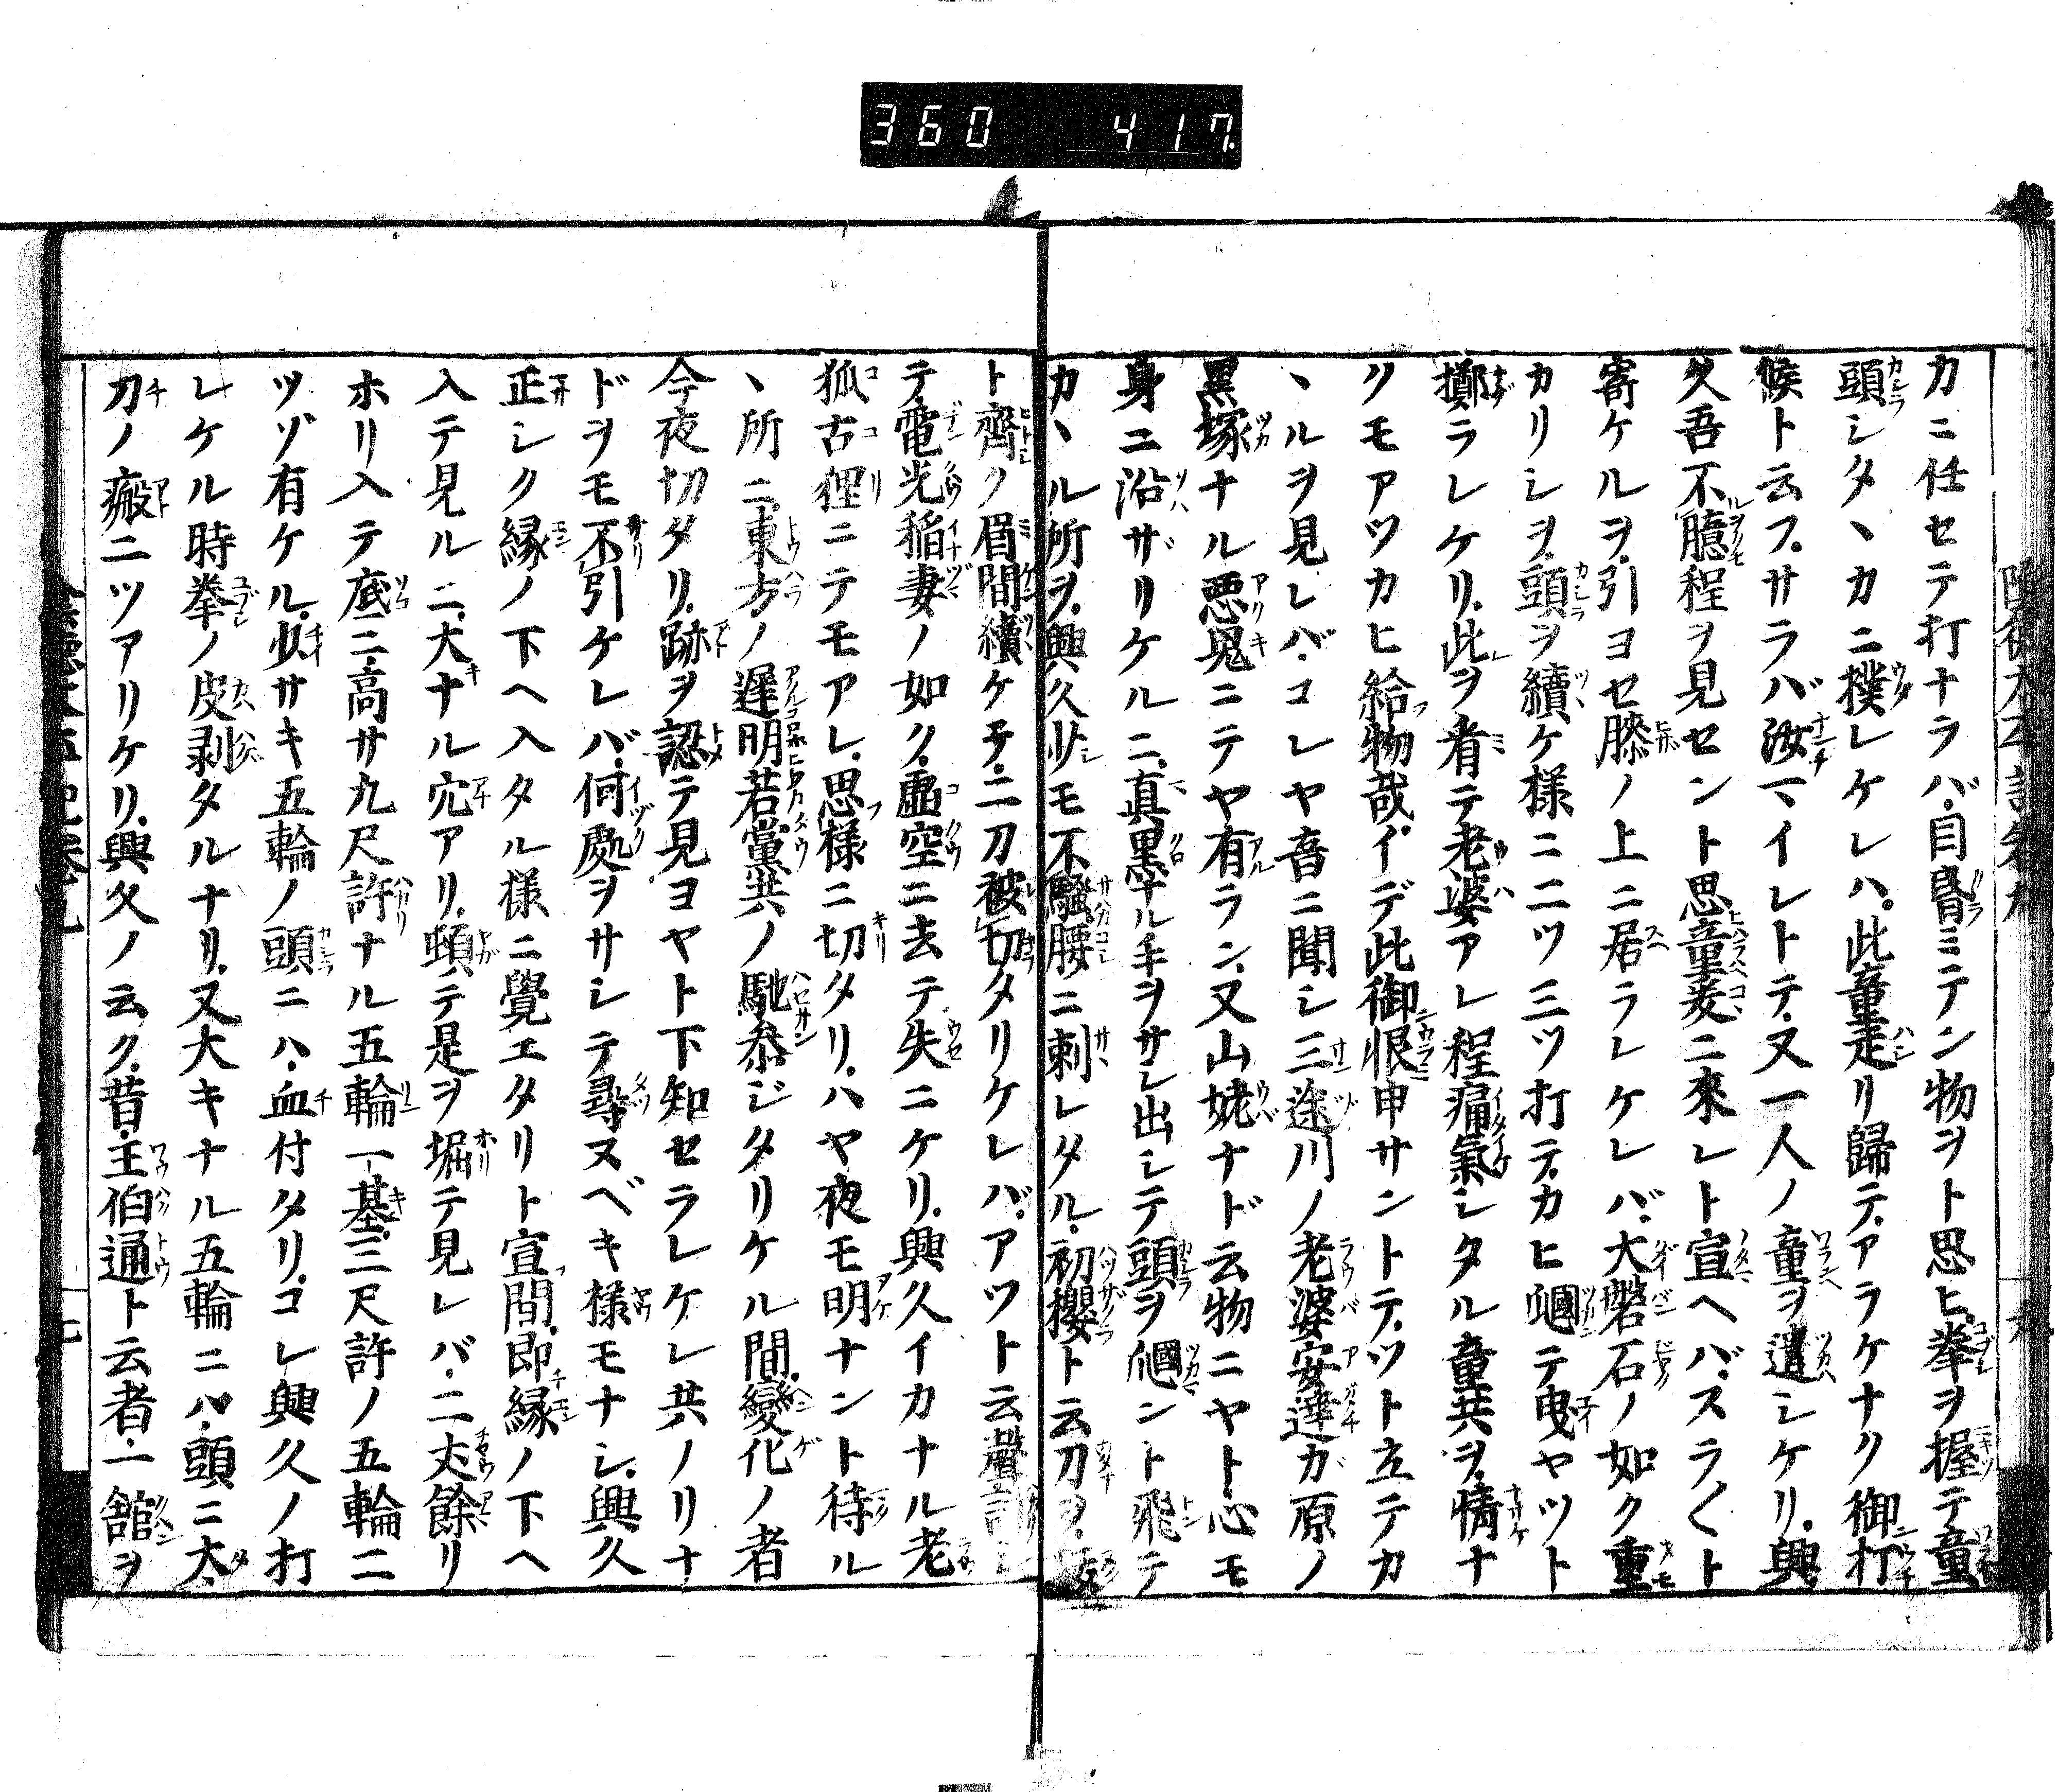 360 417
カニ任セテ打ナラバ目昏ミテン物ヲト思ヒ拳ヲ握テ童
頭シタヽカニ撲レケレハ此童走リ歸テアラケナク御打
候ト云フサラバ汝マイレトテ又一人ノ童ヲ遣シケリ興
久吾不臆程ヲ見セント思童爰ニ來レト宣ヘバスラ〱ト
寄ケルヲ引ヨセ膝ノ上ニ居ラレケレバ大磐石ノ如ク重
カリシヲ頭ヲ續ケ様ニ二ツ三ツ打テカヒ爴テ曳ヤツト
擲ラレケリ此ヲ看テ老婆アレ程痛氣シタル童共ヲ情ナ
クモアツカヒ給物哉イデ此御恨申サントテツト立テカ
ヽルヲ見レバコレヤ音ニ聞シ三途川ノ老婆安達ガ原ノ
黒塚ナル悪鬼ニテヤ有ラン又山姥ナド云物ニヤト心モ
身ニ沿ザリケルニ真黒ナル手ヲサシ出シテ頭ヲ爴ント飛テ
カヽル所ヲ興久少モ不騒腰ニ刺レタル初櫻ト云刀ヲ
ト齊ク眉間續ケテ二刀被切タリケレバアツト云聲
テ電光稲妻ノ如ク虚空ニ去テ失ニケリ興久イカナル老
狐古狸ニテモアレ思様ニ切タリハヤ夜モ明ナント待ル
ヽ所ニ東方ノ遅明若黨共ノ馳参ジタリケル間變化ノ者
今夜切タリ跡ヲ認テ見ヨヤト下知セラレケレ共ノリナ
ドヲモ不引ケレバ何處ヲサシテ尋ヌベキ様モナシ興久
正シク縁ノ下ヘ入タル様ニ覺エタリト宣間即縁ノ下ヘ
入テ見ルニ大ナル穴アリ頓テ是ヲ堀テ見レバ二丈餘リ
ホリ入テ底ニ高サ九尺許ナル五輪一基三尺許ノ五輪二
ツゾ有ケル少サキ五輪ノ頭ニハ血付タリコレ興久ノ打
レケル時拳ノ皮剥タルナリ又大キナル五輪ニハ頭ニ太
刀ノ瘢二ツアリケリ興久ノ云ク昔王伯通ト云者一舘ヲ